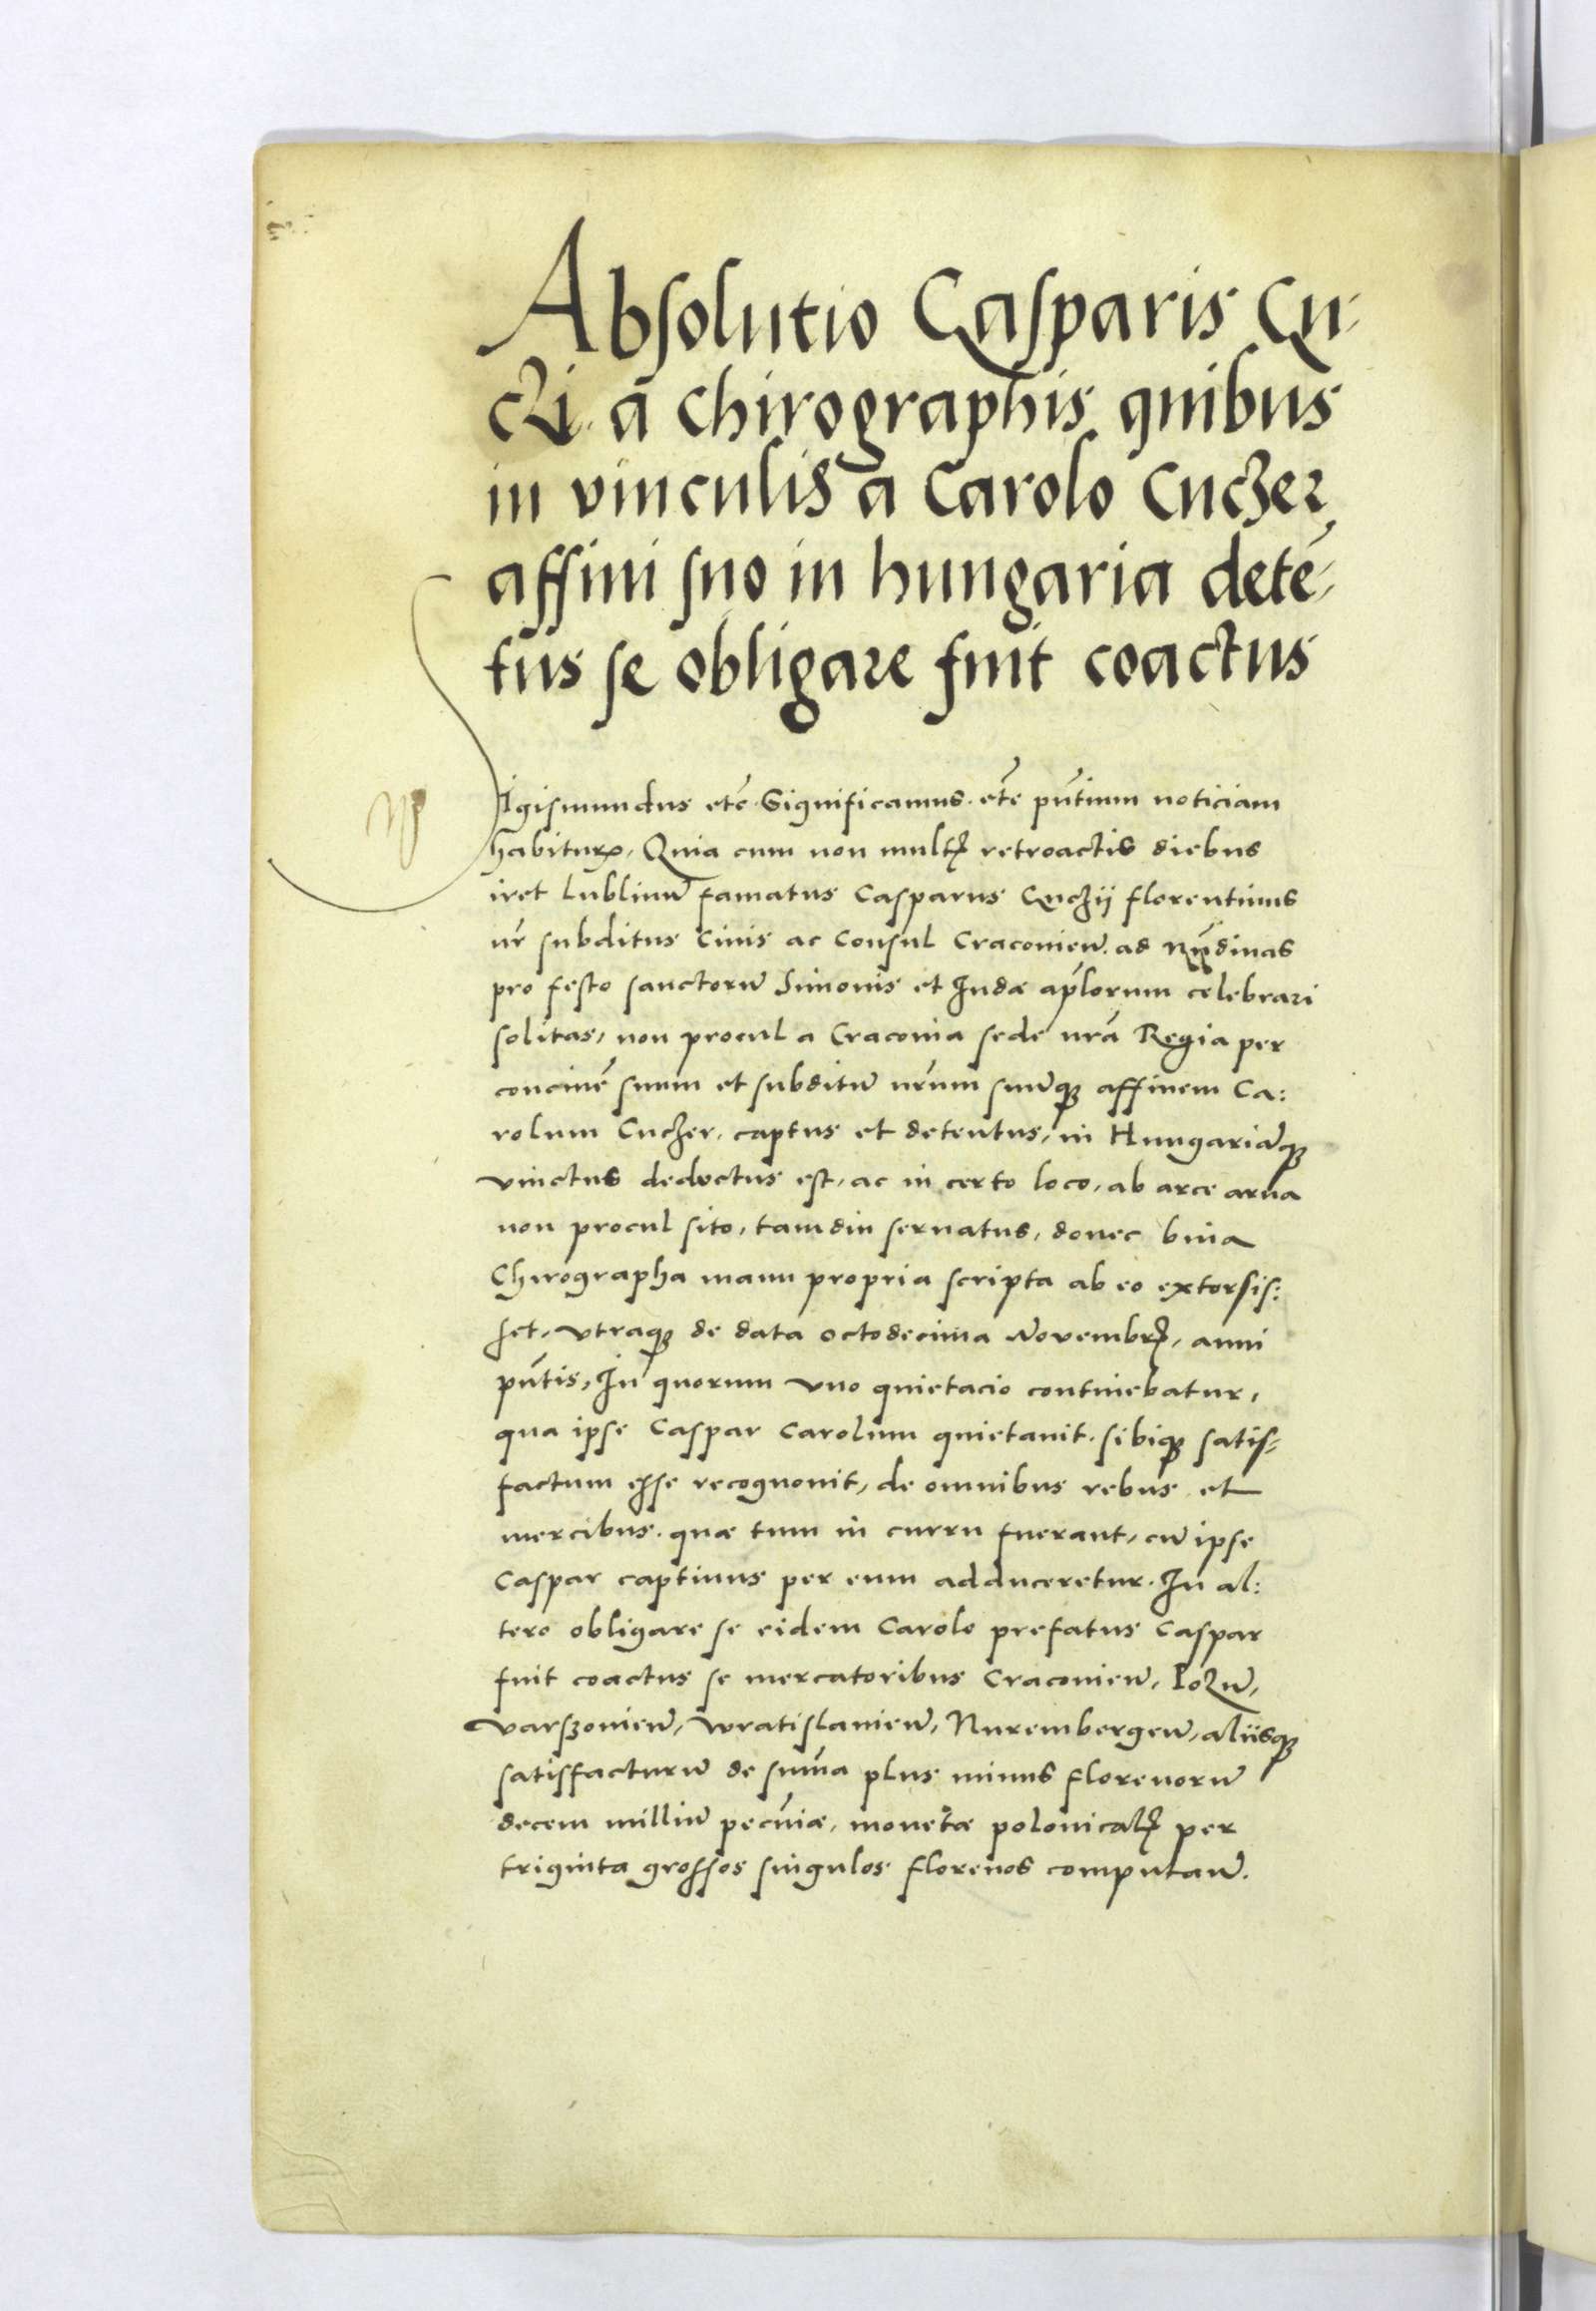 Absolutio Casparis Cu-
czi a Chirographis quibus
in vinculis a Carolo Cuczer
affini suo in hungaria detē-
tus se obligare fuit coactus
Sigismundus etc̄. Significamus. etc̄ pn̄tium noticiam
habiturꝝ. Quia cum non multꝭ retroactis diebus
iret Lublinū famatus Casparus Cuczij florentinus
nr̄ subditus Ciuis ac Consul Cracovien̄. ad Nūdinas
pro festo sanctorū Simonis et Iudæ ap̄lorum celebrari
solitas, non procul a Cracovia sede nrā Regia per
concivē suum et subditū nr̄um suūqꝫ affinem Ca:
rolum Cuczer, captus et detentus, in Hungariāqꝫ
vinctus deductus est, ac in certo loco, ab arce arua
non procul sito, tamdiu seruatus, donec bina
Chirographa manu propria scripta ab eo extorsis:
set, vtraqꝫ de data octodecima Novembrꝭ, anni
pn̄tis, In quorum vno quietacio continebatur,
qua ipse Caspar Carolum quietauit. sibiqꝫ satis-
factum esse recognouit, de omnibus rebus et
mercibus. quæ tum in curru fuerant, cū ipse
Caspar captiuus per eum adduceretur. In al:
tero obligare se eidem Carolo prefatus Caspar
fuit coactus se mercatoribus Cracovien̄, Pozn̄,
varszovien̄, wratislavien̄, Nurembergen̄, aliisqꝫ
satisfacturū de sum̄a plus minus florenorū
decem milliū pecūiæ, monetæ polonicalꝭ per
triginta grossos singulos florenos computan̄.